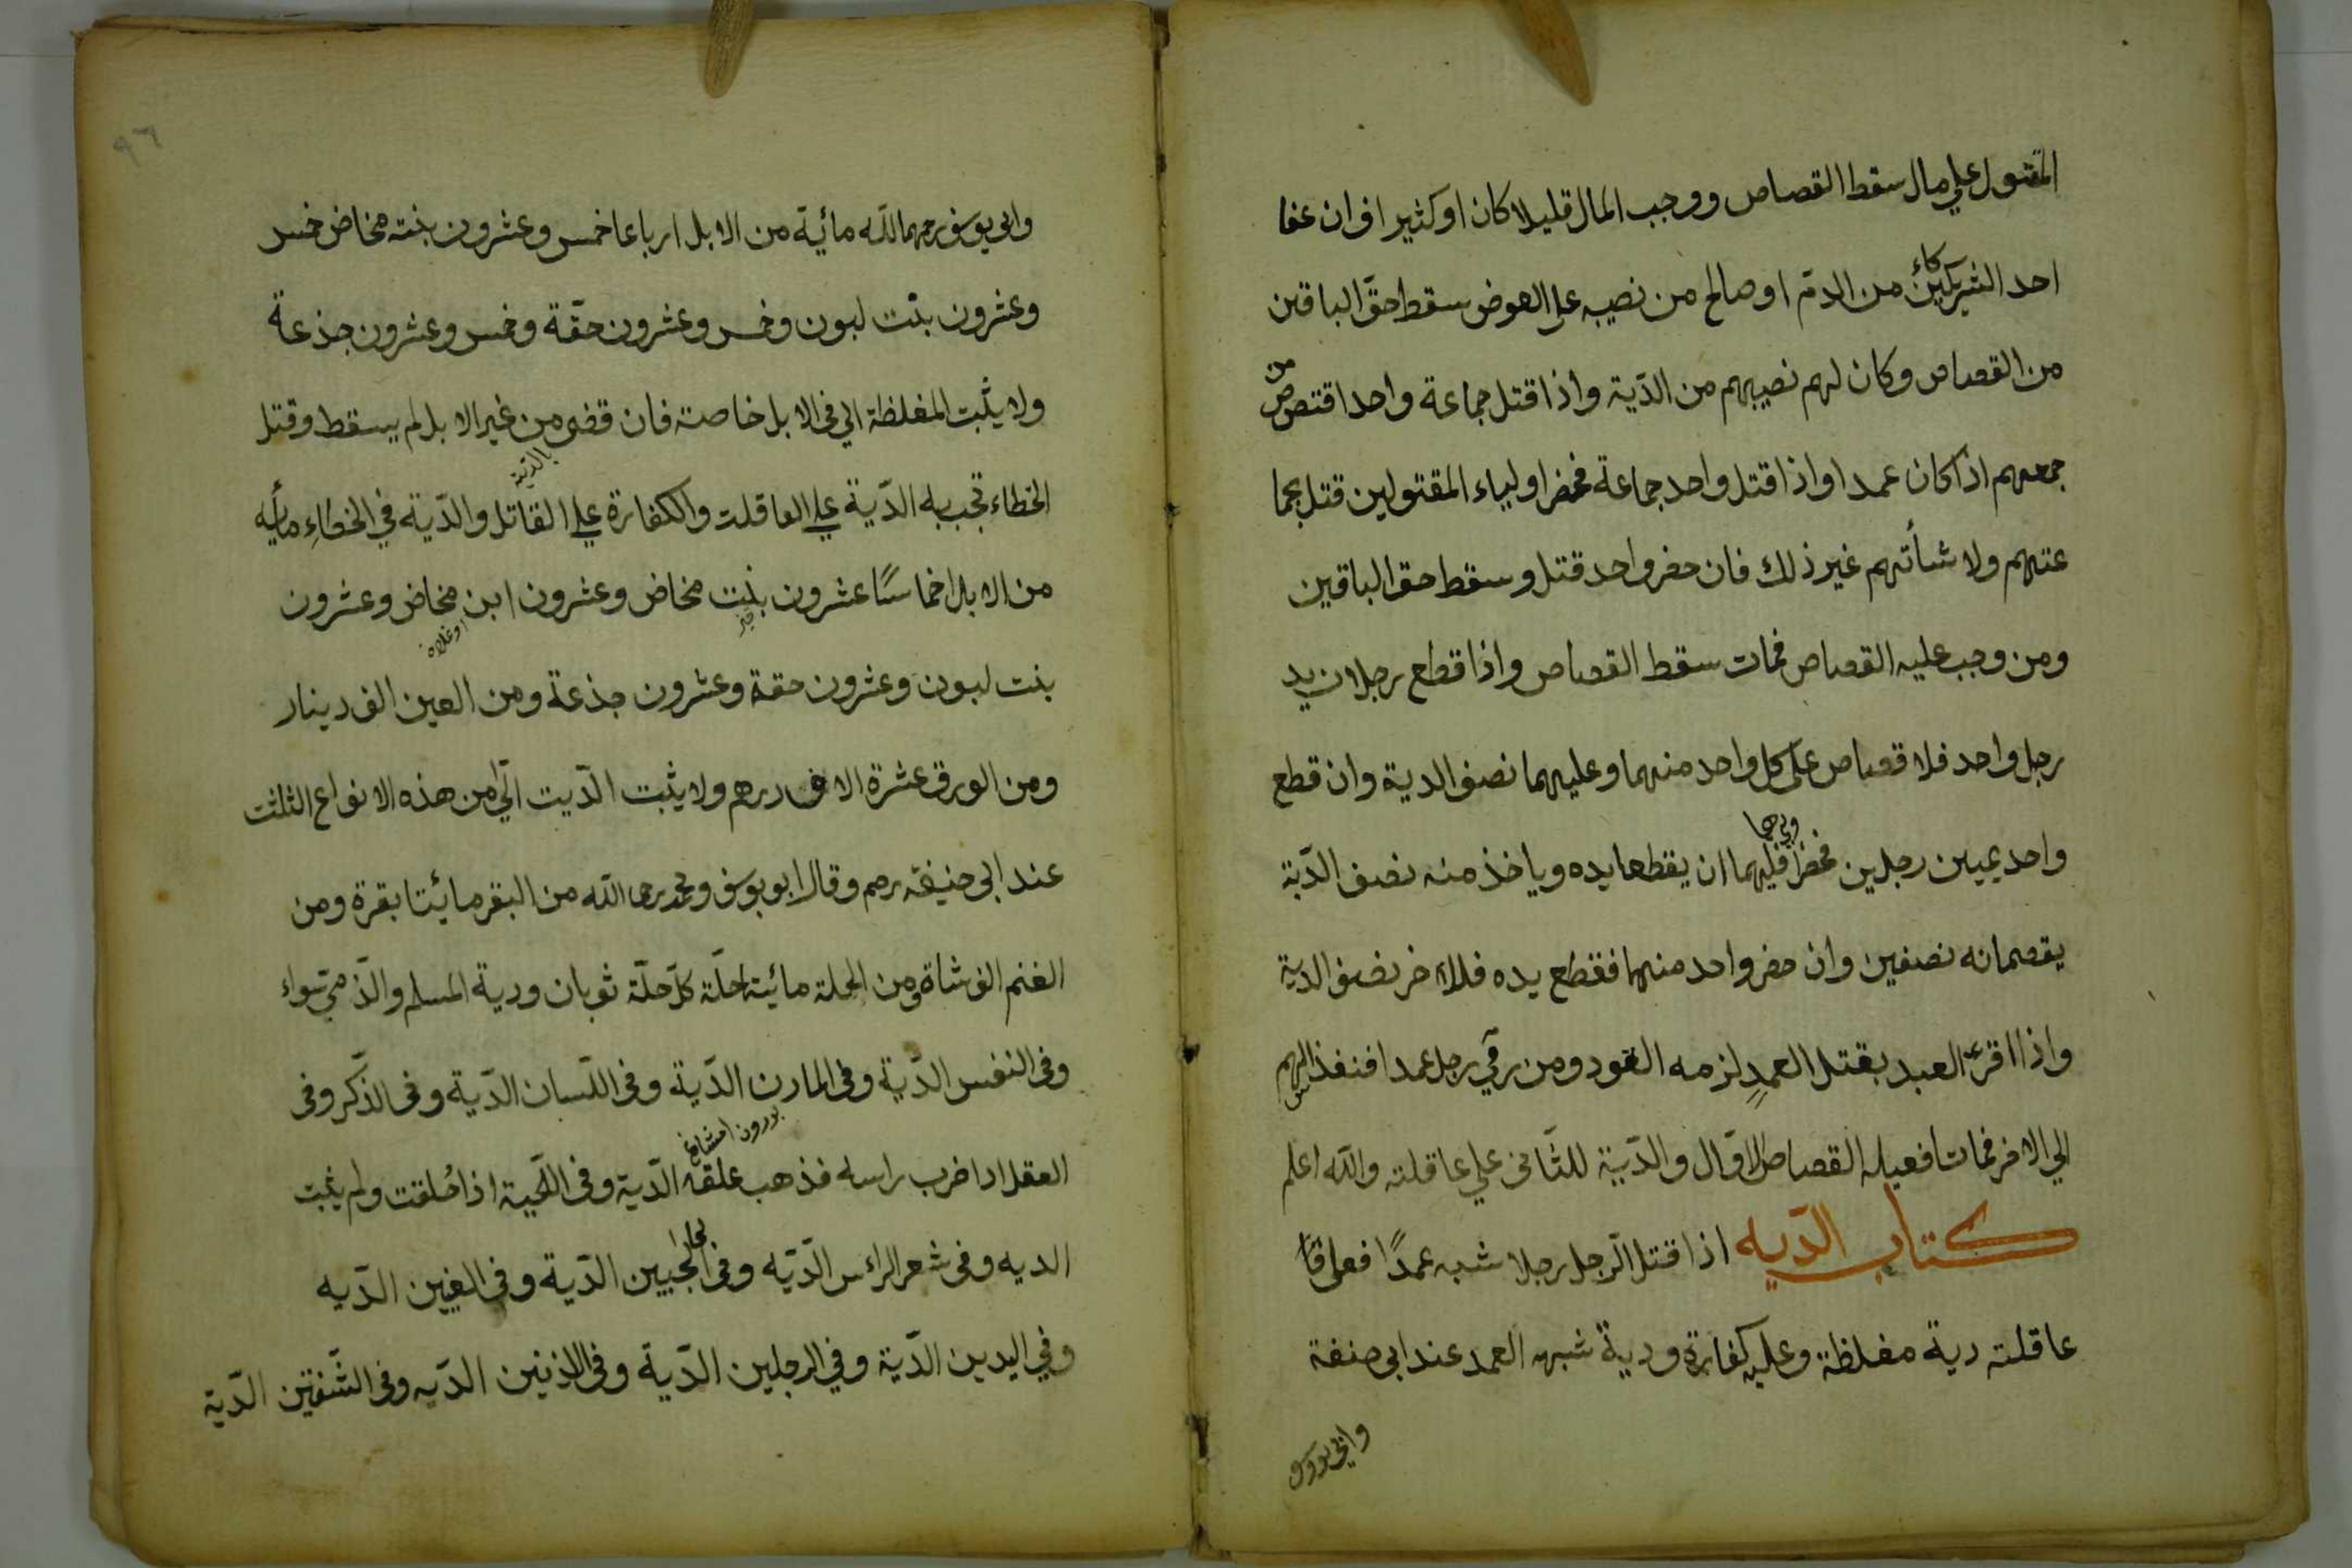 المقتول علي مال سقط القصاص ووجب المال قليلا كان او كثيرا فان عفا
احد الشريكين من الدم او صالح من نصيبه على العوض سقط حق الباقين
كاء
من القصاص وكان لهم نصيبهم من الدّية واذا قتل جماعة واحدا قتصص
من
جمعهم اذا كان عمدا واذا قتل واحد جماعة فحضر اولياء المقتولين قتل بجما
عتهم ولا شأتهم غير ذلك فان حضر واحد قتل وسقط حق الباقين
ومن وجب عليه القصاص فمات سقط القصاص واذا قطع رجلان يد
رجل واحد فلا قصاص على كل واحد منهما وعليهما نصف الدية وان قطع
واحد يميين رجلين فحضرا فليهما ان يقطعا يده وياخذ منه نصف الدّية
يقصمانه نصفين وان حضر واحد منهما فقطع يده فللاخر نصف الدية
واذا اقر العبد بقتل العمدِ لزمه القود ومن رمي رجل عمدا فنفذ السهم
الي الاخر فمات فعيله القصاص للاوّل والدّية للثّاني علي عاقلته والله اعلم
كتاب الدّيه اذا قتل الرّجل رجلا شبه عمدًا فعلى
عاقلته دية مغلظة وعليه كفارة ودية شبه العمد عند ابى حنفة
وابي يوسف
٩٦
وابى يوسف رحمهما الله مائية من الابل ارباعا خمس وعشرون بنت مخاض خمس
وعشرون بنت لبون وخمس وعشرون حقّة وخمس وعشرون جذعة
ولا يثبت المغلظة الي فى الابل خاصة فان قضى من غير الابل لم يسقط وقتل
بالدّية
الخطاء تجب به الدّية علي العاقلت والكفارة علي القاتل والدّية في الخطاءِ مأيه
من الابل اخماسًا عشرون بنت مخاض وعشرون ابن مخاض وعشرون
اوغلان
بنت لبون وعشرون حقة وعشرون جذعة ومن العين الف دينار
ومن الورق عشرة الاف درهم ولا يثبت الدّيت الّي من هذه الانواع الثلثت
عند ابى حنيفه رحم وقال ابو يوسف ومحمد رحما الله من البقر مائيتا بقرة ومن
الغنم الف شاة ومن الحلة مائيتا حلّة كلّ حلّة ثوبان ودية المسلم والذّمّي سواء
وفى النفس الدّية وفى المارن الدّية وفى اللّسان الدّية وفى الذّكر وفى
بورون امشاغ
العقل اذا ضرب راسه فذهب علقه الدّية وفى اللّحية اذا حُلقت ولم ينبت
الديه وفى شعر الراس الدّيّه وفى الحجبين الدّية وفى العينين الدّيه
وفي اليدين الدّية وفي الرجلين الدّية وفى الاذنين الدّيه وفى الشّفتين الدّية